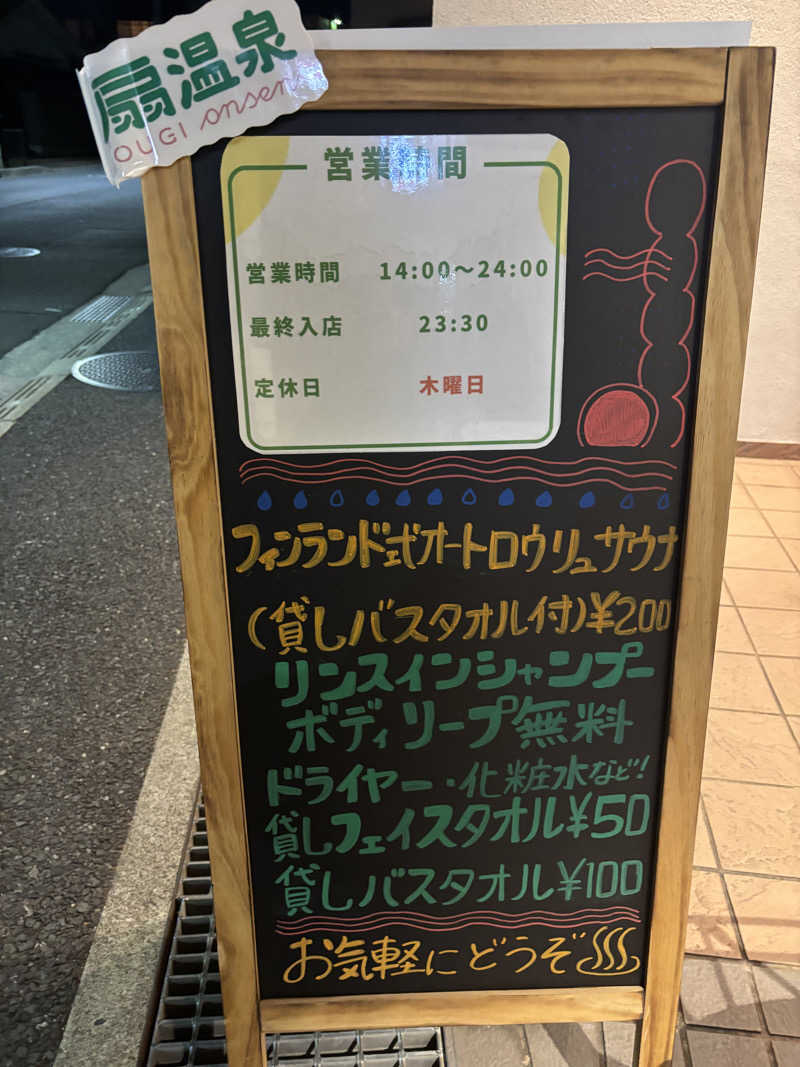 扇温泉
OUGI onsen
営業時間
営業時間 14:00〜24:00
最終入店 23:30
定休日 木曜日
フィンランド式オートロウリュサウナ
(貸しバスタオル付)¥200
リンスインシャンプー
ボディソープ無料
ドライヤー・化粧水など!
貸しフェイスタオル¥50
貸しバスタオル¥100
お気軽にどうぞ♨